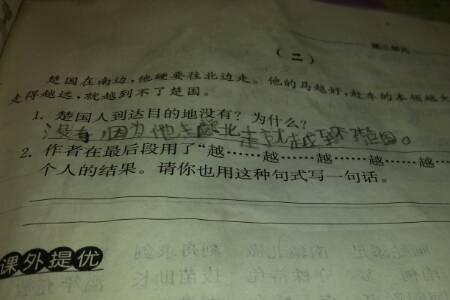 (二)
楚国在南边，他硬要往北边走。他的马越好，赶车的本领越大
走得越远，就越到不了楚国。
1. 楚国人到达目的地没有？为什么？
没有，因为他走
2. 作者在最后段用了“越……越……越……越……越…
个人的结果。请你也用这种句式写一句话。
课外提优